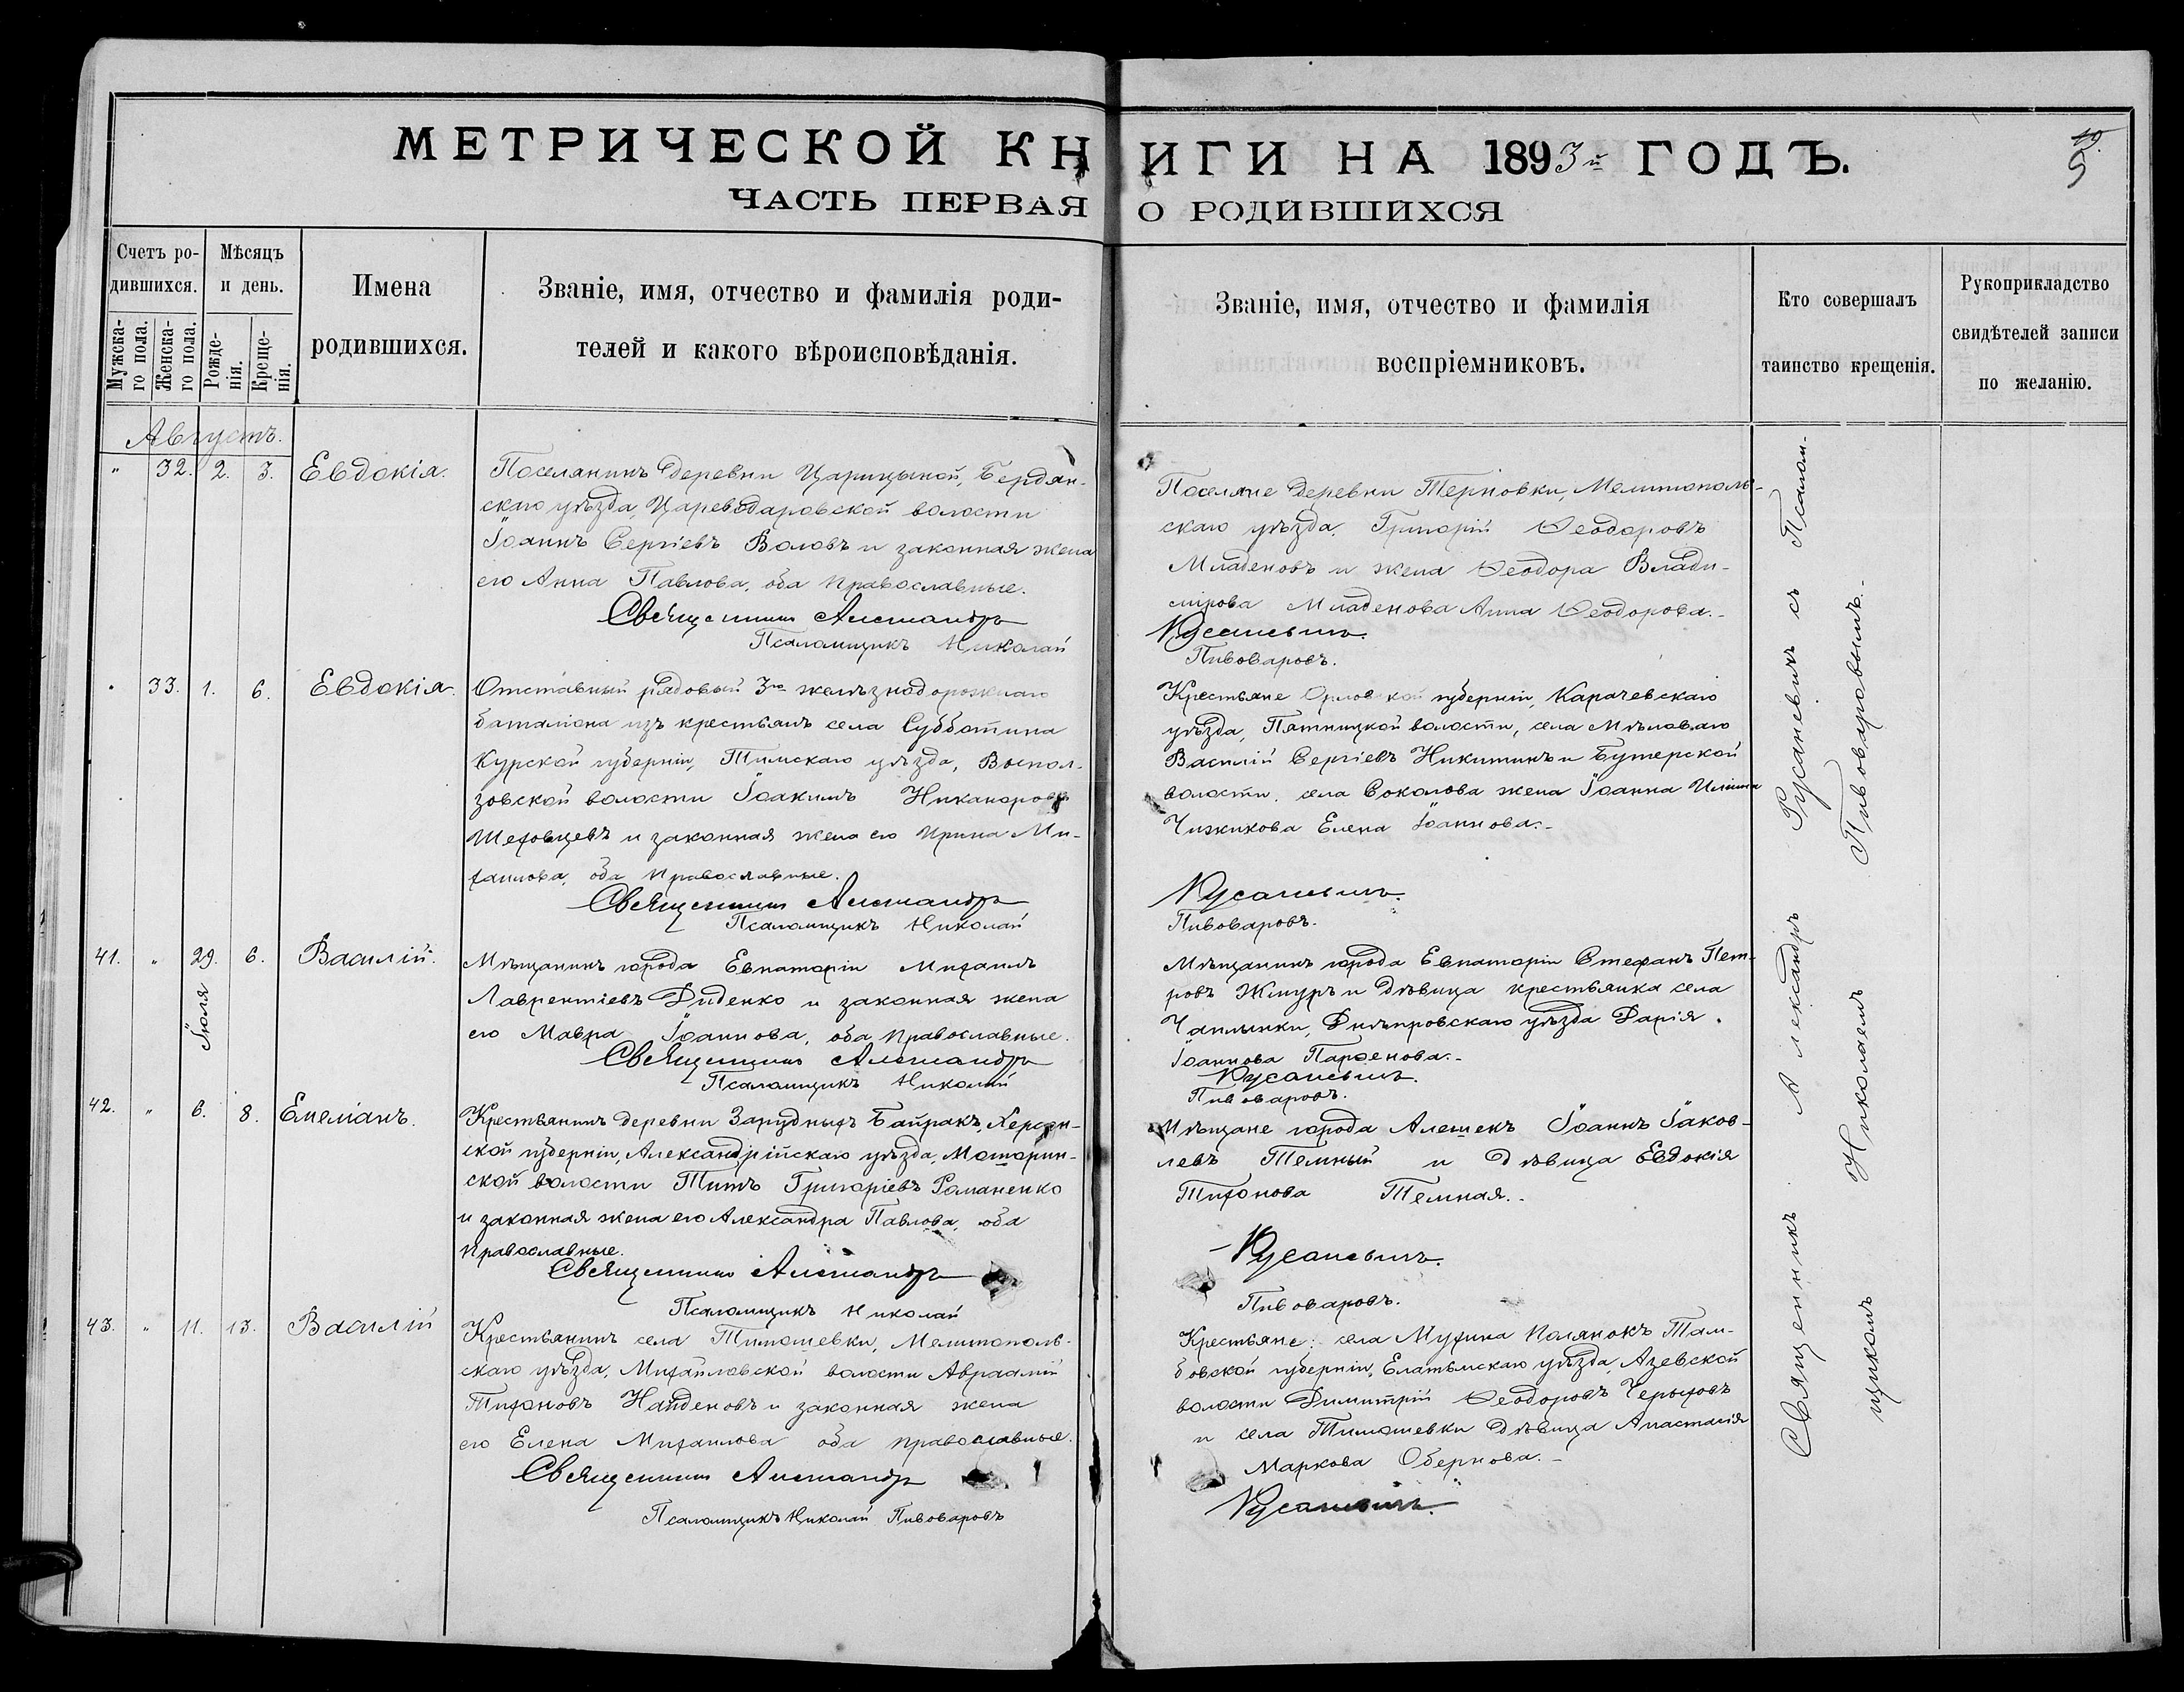 МЕТРИЧЕСКОЙ КНИГИ НА 1893й ГОДЪ.
ЧАСТЬ ПЕРВАЯ О РОДИВШИХСЯ
19.
9
Счетъ ро-
дившихся.
Мужска-
го пола.
Женска-
го пола.
Мѣсяцъ
и день.
Рожде-
нія.
Креще-
нія.
Имена
родившихся.
Званіе, имя, отчество и фамилія роди-
телей и какого вѣроисповѣданія.
Званіе, имя, отчество и фамилія
воспріемниковъ.
Кто совершалъ
таинство крещенія.
Рукоприкладство
свидѣтелей записи
по желанію.
Августъ.
" 32. 2. 3. Евдокія.
Поселянинъ деревни Царицыной, Бердян-
скаго уѣзда, Цареводаровской волости
Іоаннъ Сергіевъ Воловъ и законная жена
его Анна Павлова, оба православные.
Священникъ Александръ
Псаломщикъ Николай
Поселяне деревни Терновки, Мелитополь-
скаго уѣзда, Григорій Ѳеодоровъ
Младеновъ и жена Ѳеодора Влади-
мірова Младенова Анна Ѳеодорова.-
Русаневичъ.
Пивоваровъ.
" 33. 1. 6. Евдокія.
Отставный рядовый 3го желѣзнодорожнаго
баталіона изъ крестьянъ села Субботина
Курской губерніи, Тимскаго уѣзда, Выпол-
зовской волости Іоакимъ Никаноровъ
Шеховцевъ и законная жена его Ирина Ми-
хаилова, оба православные.
Священникъ Александръ
Псаломщикъ Николай
Крестьяне Орловской губерніи, Карачевскаго
уѣзда, Пятницкой волости, села Мѣловаго
Василій Сергіевъ Никитинъ и Бутерской
волости, села Соколова жена Іоанна Ильина
Чижикова Елена Іоаннова.-
Русаневичъ.
Пивоваровъ.
41. " 29. Іюля 6. Василій.
Мѣщанинъ города Евпаторіи Михаилъ
Лаврентіевъ Диденко и законная жена
его Мавра Іоаннова, оба православные.
Священникъ Александръ
Псаломщикъ Николай
Мѣщанинъ города Евпаторіи Стефанъ Пет-
ровъ Жмуръ и дѣвица крестьянка села
Чаплинки, Днѣпровскаго уѣзда Дарія
Іоаннова Парѳенова.-
Русаневичъ.
Пивоваровъ.
42. " 6. 8. Емеліанъ.
Крестьянинъ деревни Зарудныхъ Байракъ, Херсон-
ской губерніи, Александрійскаго уѣзда, Моторин-
ской волости Титъ Григоріевъ Романенко
и законная жена его Александра Павлова, оба
православные.
Священникъ Александръ
Псаломщикъ Николай
Мѣщане города Алешекъ Іоаннъ Іаков-
левъ Темный и дѣвица Евдокія
Тихонова Темная.-
Русаневичъ.
Пивоваровъ.
43. " 11. 13. Василій
Крестьянинъ села Тимошевки, Мелитополь-
скаго уѣзда, Михайловской волости Авраамій
Тихоновъ Найденовъ и законная жена
его Елена Михаилова оба православные.
Священникъ Александръ
Псаломщикъ Николай Пивоваровъ
Крестьяне: села Мухина Полянокъ Там-
бовской губерніи, Елатьмскаго уѣзда, Азевской
волости Димитрій Ѳеодоровъ Черыховъ
и села Тимошевки дѣвица Анастасія
Маркова Обернова.-
Русаневичъ.
Священникъ Александръ Русаневичъ съ Псалом-
щикомъ Николаемъ Пивоваровымъ.